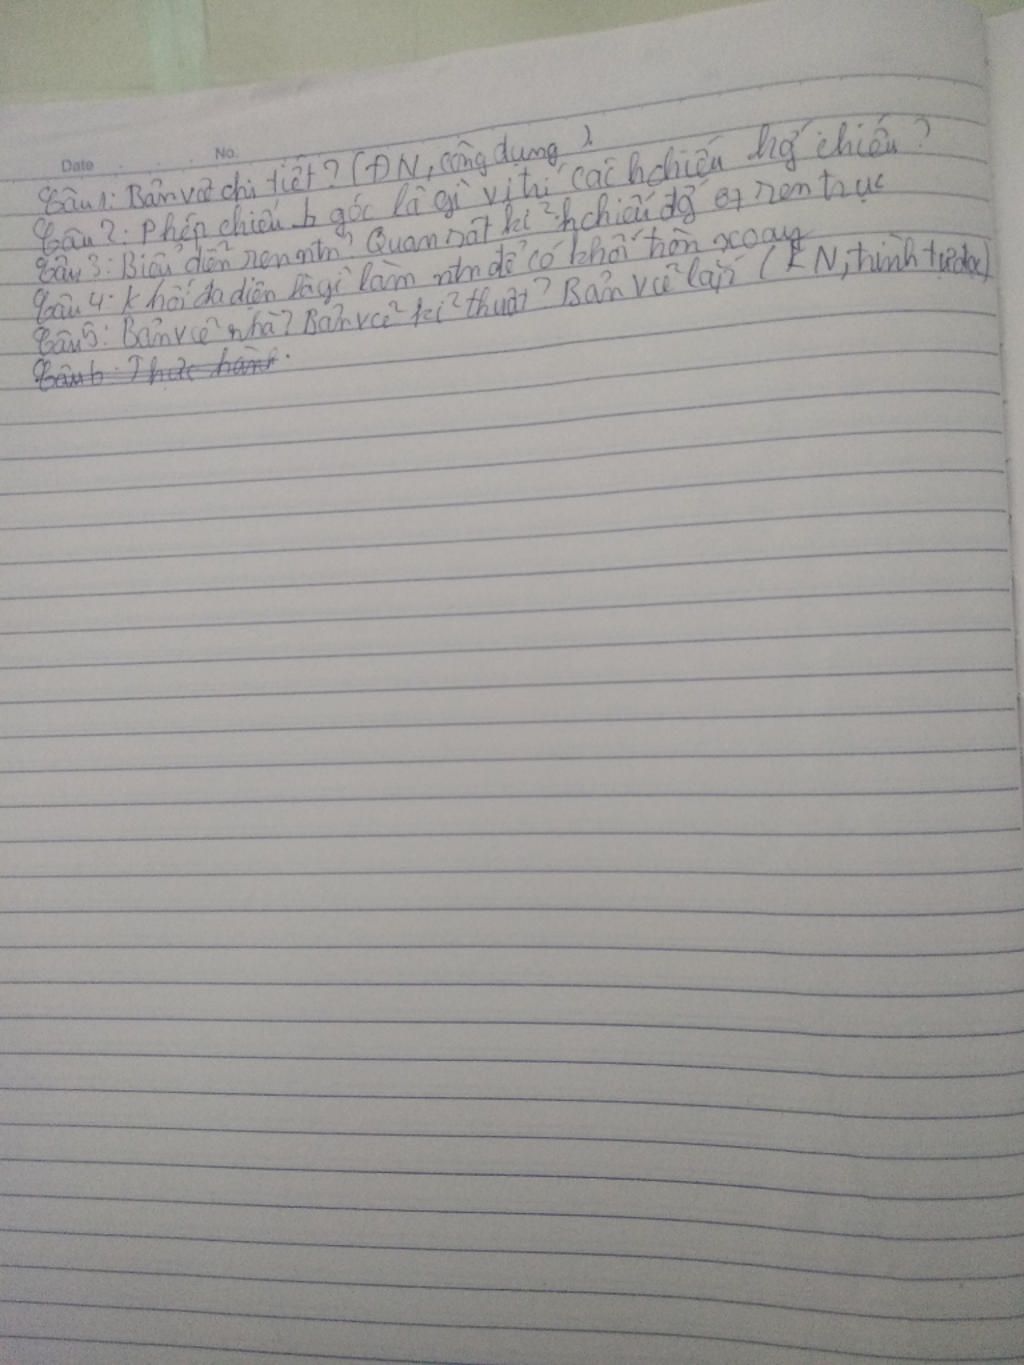 Date No.
Câu 1: Bản vẽ chi tiết? (ĐN, công dụng)
Câu 2: Phép chiếu b góc là gì vị trí các hchiếu hg chiếu?
Câu 3: Biểu diễn ren ntn? Quan sát kĩ hchiếu để ren trục
Câu 4: Khối đa diện là gì làm ntn để có khối tròn xoay
Câu 5: Bản vẽ nhà? Bản vẽ kĩ thuật? Bản vẽ lắp (KN, trình tự đọc)
Câu 6: Thực hành.